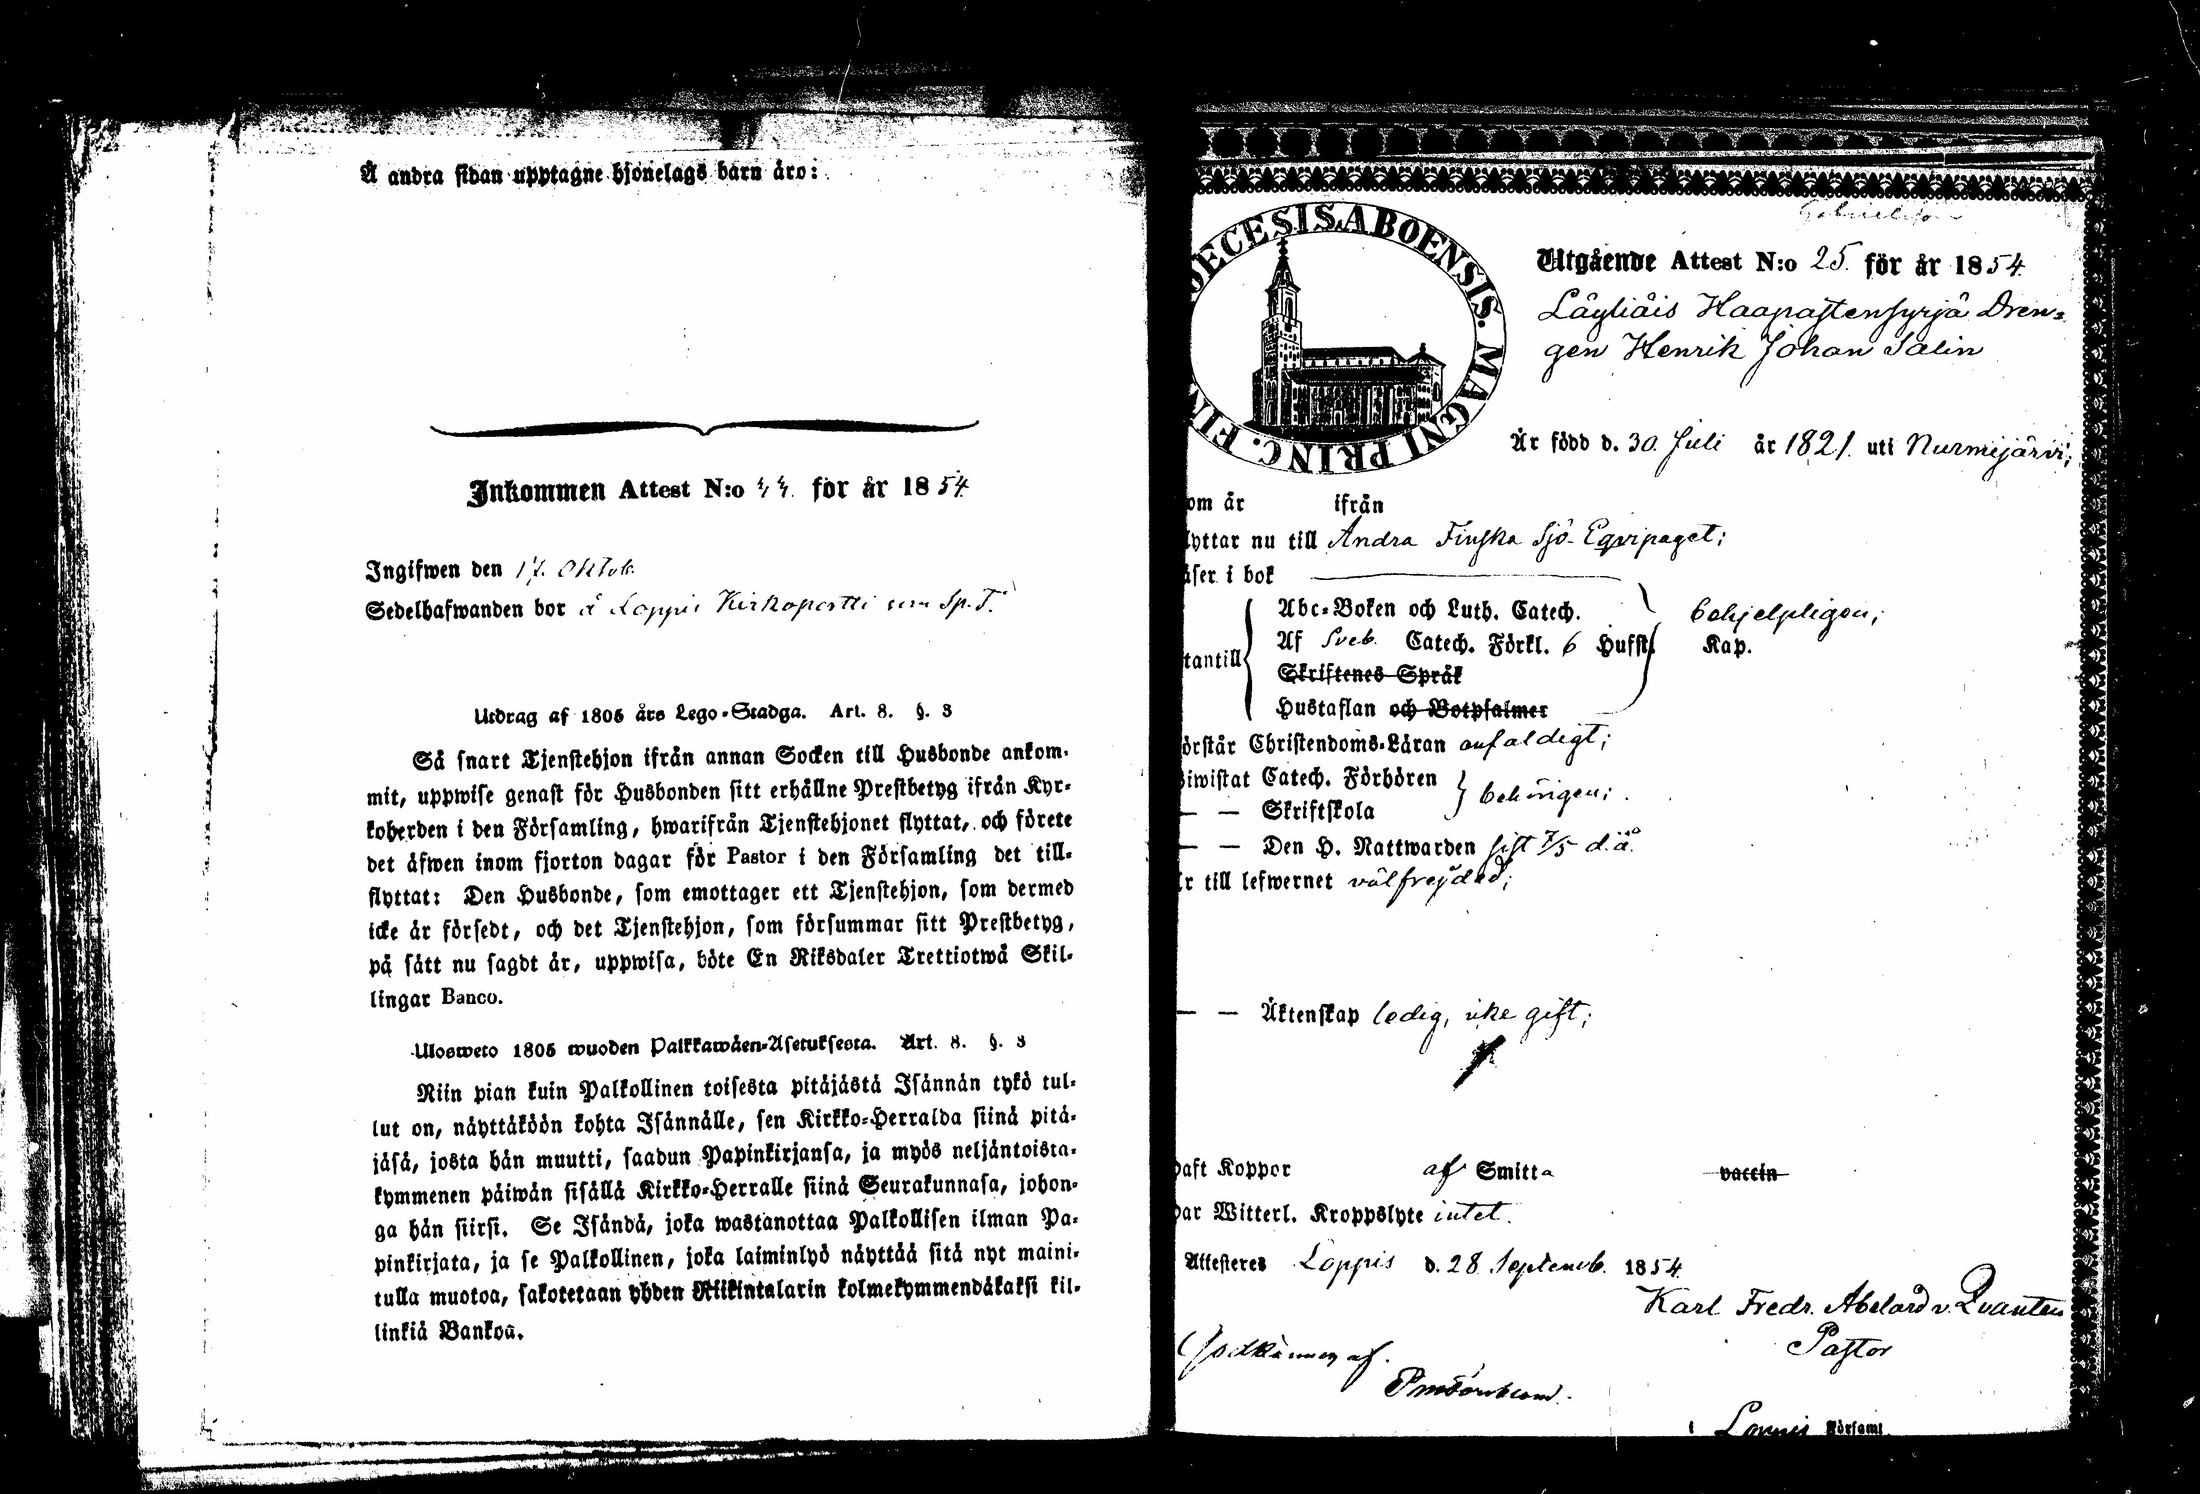 Å andra sidan upptagne hjonelags barn äro:
Inkommen Attest N:o 44. för år 1854.
Ingifwen den 17. Oktob.
Sedelhafwanden bor å Loppis Kirkoportti som Sp. T.
Utdrag af 1805 års Lego-Stadga. Art. 8. §. 3
Så snart Tjenstehjon ifrån annan Socken till Husbonde ankom-
mit, uppwise genast för Husbonden sitt erhållne Prestbetyg ifrån Kyr-
koherden i den Församling, hwarifrån Tjenstehjonet flyttat, och förete
det äfwen inom fjorton dagar för Pastor i den Församling det till-
flyttat: Den Husbonde, som emottager ett Tjenstehjon, som dermed
icke är försedt, och det Tjenstehjon, som försummar sitt Prestbetyg,
på sätt nu sagdt är, uppwisa, böte En Riksdaler Trettiotwå Skil-
lingar Banco.
Ulosweto 1805 wuoden Palkkawäen-Asetuksesta. Art. 8. §. 3
Niin pian kuin Palkollinen toisesta pitäjästä Isännän tykö tul-
lut on, näyttäköön kohta Isännälle, sen Kirkko-Herralda siinä pitä-
jäsä, josta hän muutti, saadun Papinkirjansa, ja myös neljäntoista-
kymmenen päiwän sisällä Kirkko-Herralle siinä Seurakunnasa, johon-
ga hän siirsi. Se Isändä, joka wastanottaa Palkollisen ilman Pa-
pinkirjata, ja se Palkollinen, joka laiminlyö näyttää sitä nyt maini-
tulla muotoa, sakotetaan yhden Riikintalarin kolmekymmendäkaksi kil-
linkiä Bankoa.
DECESIS. ABOENSIS. MAGNI PRINC. FIN
Utgående Attest N:o 25. för år 1854.
Läyliäis Haapastensyrjä Dren-
gen Henrik Johan Salin
Är född d. 30. Juli år 1821. uti Nurmijärvi;
om år ifrån
lyttar nu till Andra Finska Sjö-Eqvipaget;
äser i bok
Abc-Boken och Luth. Catech. behjelpligen;
tantill Af Sveb. Catech. Förkl. 6 Hufst. Kap.
Skriftenes Språk
Hustaflan och Botpsalmer
örstår Christendoms-Läran enfaldigt;
Biwistat Catech. Förhören behörigen;
— — Skriftskola
— — Den H. Nattwarden sist 7/5 d.å.
Är till lefwernet välfrejdad;
— — Äktenskap ledig, icke gift;
Haft Koppor af Smitta vaccin
Har Witterl. Kroppslyte intet.
Attesteres Loppis d. 28 Septemb. 1854
Karl Fredr. Abelard v. Qvanten
Pastor
Godkännes af.
i Loppis Församl.